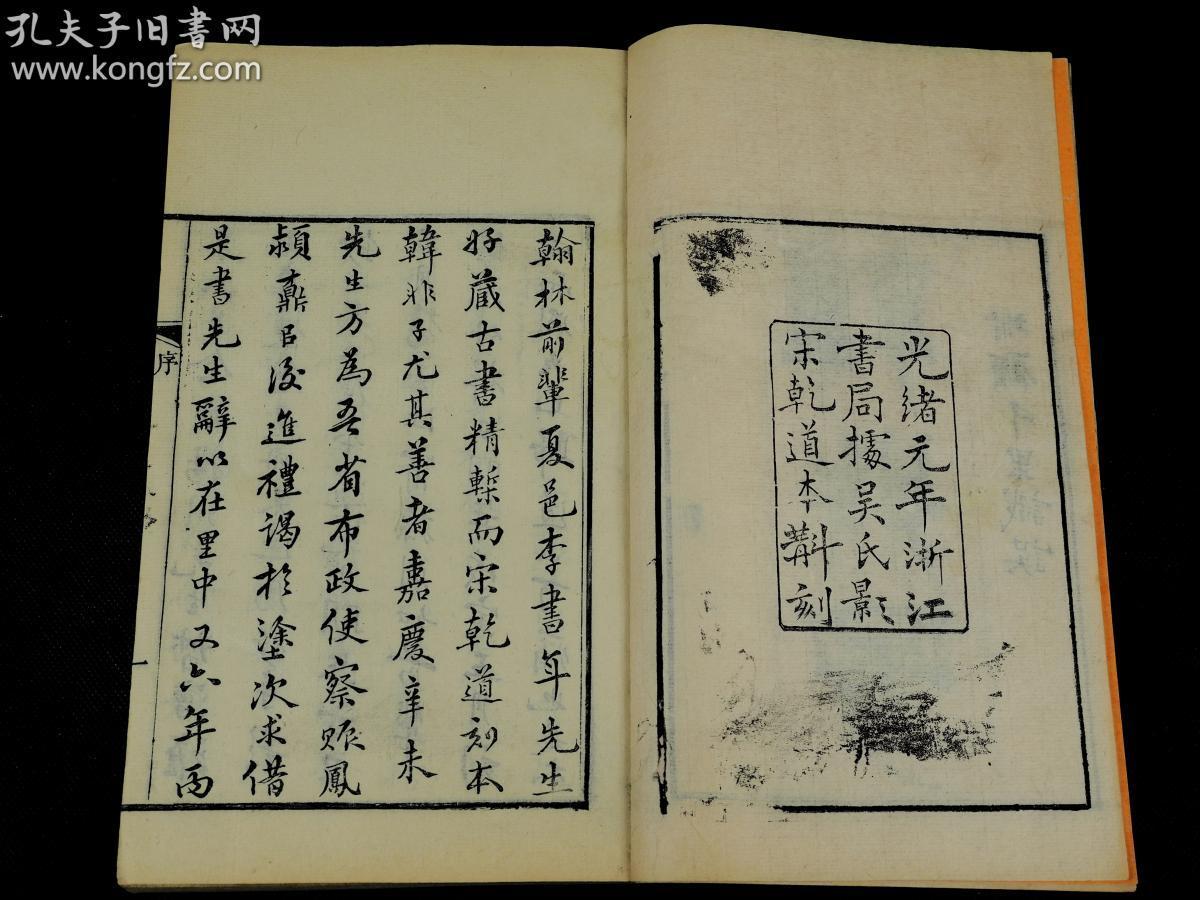 孔夫子旧书网
www.kongfz.com
光緒元年浙江
書局據吴氏影
宋乾道本斠刻
翰林前輩夏邑李書年先生
好藏古書精槧而宋乾道刻本
韓非子尤其善者嘉慶辛未
先生方為吾省布政使察賑鳳
潁鼒㠯後進禮謁於塗次求借
是書先生辭以在里中又六年丙
序
一